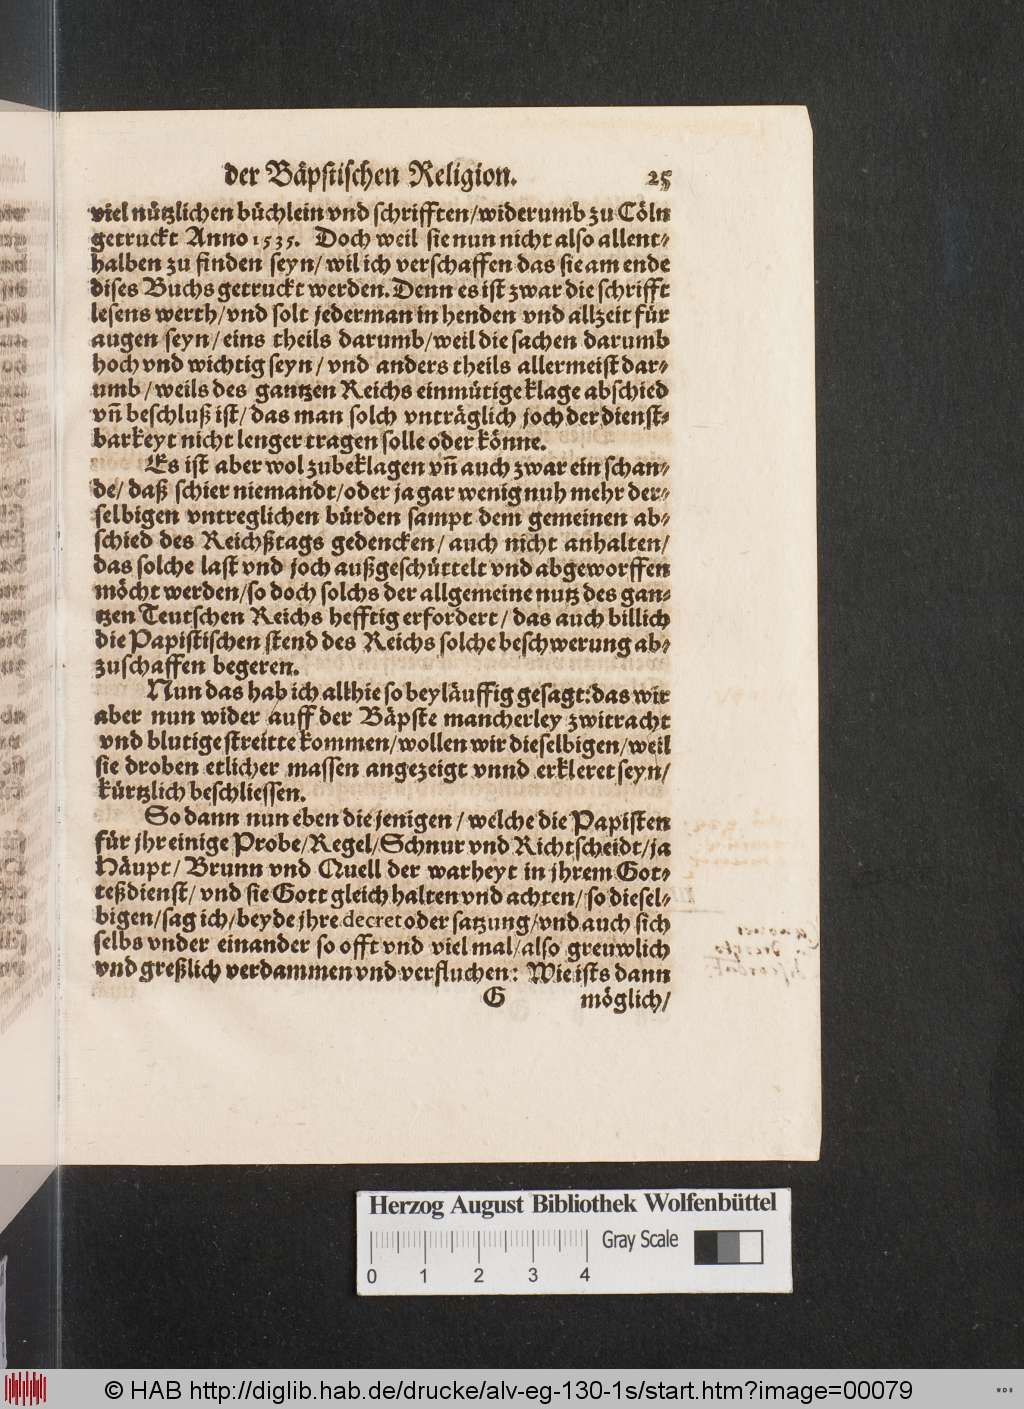 der Bäpstischen Religion. 25
viel nützlichen büchlein vnd schrifften/widerumb zu Cöln
getruckt Anno 1535. Doch weil sie nun nicht also allent⸗
halben zu finden seyn/ wil ich verschaffen das sie am ende
dises Buchs getruckt werden. Denn es ist zwar die schrifft
lesens werth/vnd solt jederman in henden vnd allzeit für
augen seyn/ eins theils darumb/weil die sachen darumb
hoch vnd wichtig seyn/ vnd anders theils allermeist dar⸗
umb/ weils des gantzen Reichs einmütige klage abschied
vñ beschluß ist/ das man solch vnträglich joch der dienst⸗
barkeyt nicht lenger tragen solle oder könne.
Es ist aber wol zubeklagen vñ auch zwar ein schan⸗
de/ daß schier niemandt/oder ja gar wenig nuh mehr der⸗
selbigen vntreglichen bürden sampt dem gemeinen ab⸗
schied des Reichßtags gedencken/ auch nicht anhalten/
das solche last vnd joch außgeschüttelt vnd abgeworffen
möcht werden/so doch solchs der allgemeine nutz des gan⸗
tzen Teutschen Reichs hefftig erfordert/ das auch billich
die Papistischen stend des Reichs solche beschwerung ab⸗
zuschaffen begeren.
Nun das hab ich allhie so beyläuffig gesagt: das wir
aber nun wider auff der Bäpste mancherley zwitracht
vnd blutige streitte kommen/wollen wir dieselbigen/weil
sie droben etlicher massen angezeigt vnnd erkleret seyn/
kürtzlich beschliessen.
So dann nun eben die jenigen/ welche die Papisten
für jhr einige Probe/Regel/Schnur vnd Richtscheidt/ja
Häupt/ Brunn vnd Quell der warheyt in jhrem Got⸗
teßdienst/ vnd sie Gott gleich halten vnd achten/ so diesel⸗
bigen/sag ich/beyde jhre decret oder satzung/vnd auch sich
selbs vnder einander so offt vnd viel mal/also greuwlich
vnd greßlich verdammen vnd verfluchen: Wie ists dann
G möglich/
Herzog August Bibliothek Wolfenbüttel
Gray Scale
0 1 2 3 4
© HAB http://diglib.hab.de/drucke/alv-eg-130-1s/start.htm?image=00079